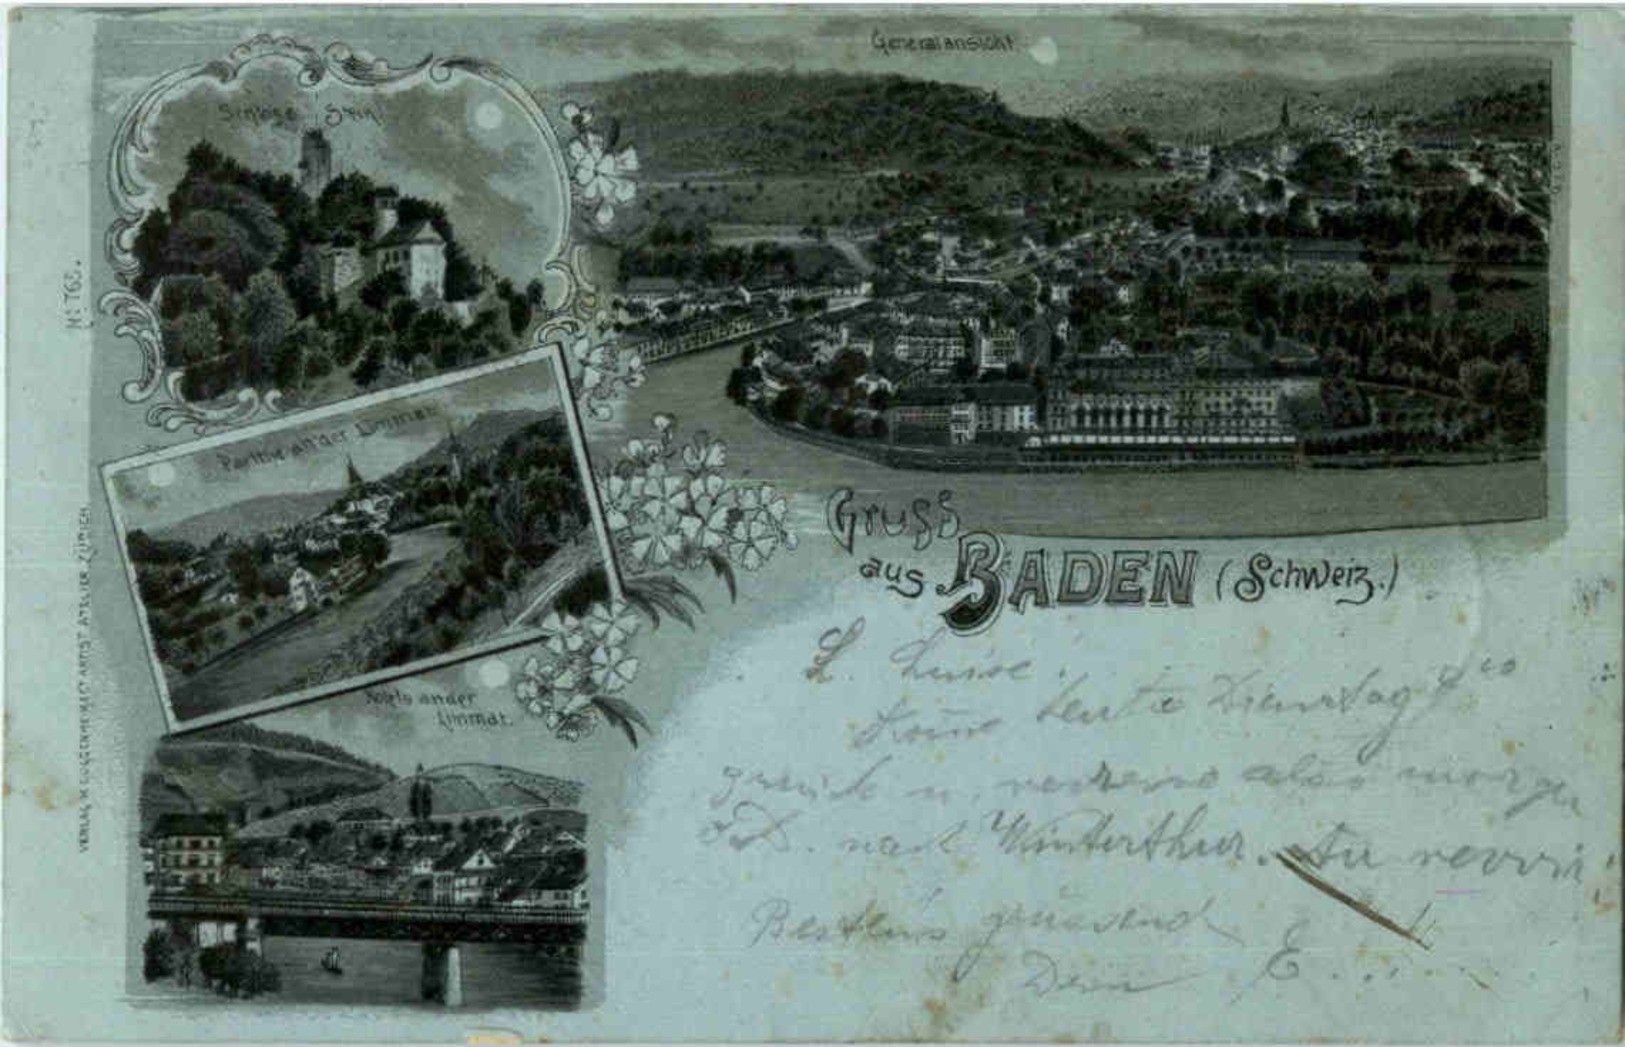 Generalansicht
Schloss Stein
Parthie an der Limmat
Hotels an der
Limmat.
Gruss
aus BADEN (Schweiz.)
No 768.
VERLAG H. GUGGENHEIM & Co ARTIST ATELIER ZÜRICH
L. Luise!
Komme heute Dienstag
zurück u. verreise also morgen
nach Winterthur. Au revoir!
Bestens grüssend
Dein E....